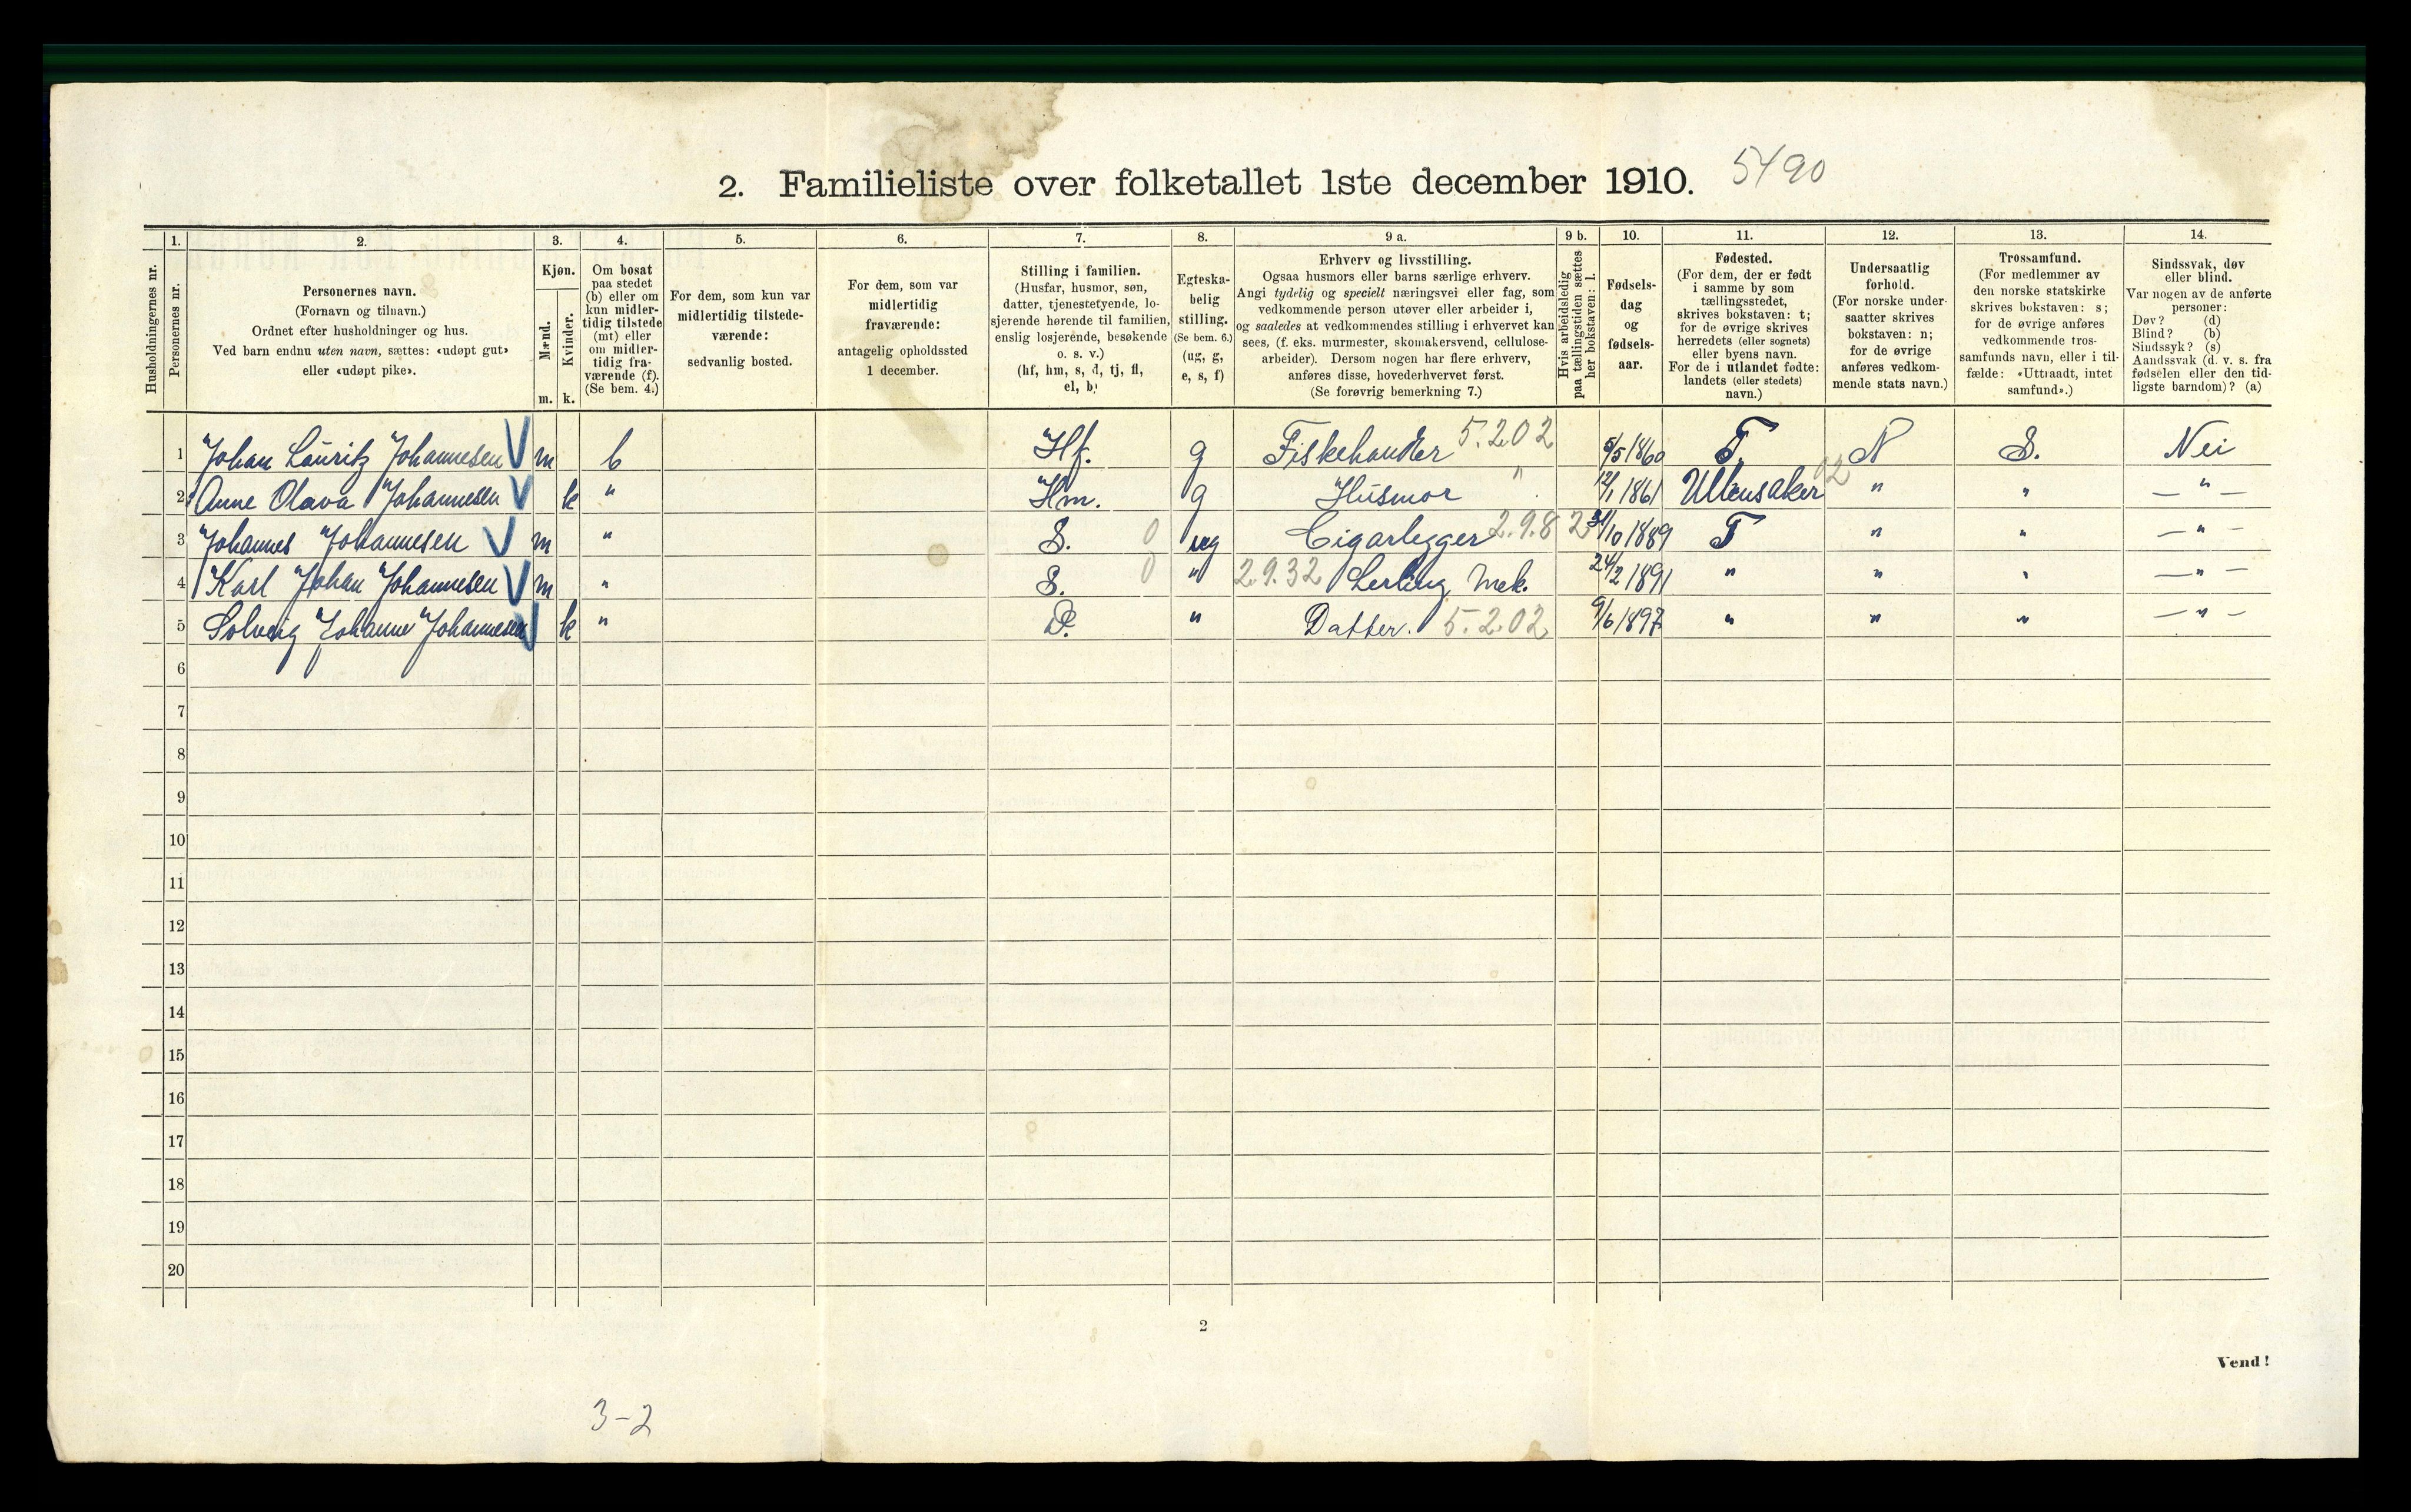 2. Familieliste over folketallet 1ste december 1910. 5490
Husholdningernes nr.
1. Personernes nr.
2.
Personernes navn.
(Fornavn og tilnavn.)
Ordnet efter husholdninger og hus.
Ved barn endnu uten navn, sættes: «udøpt gut»
eller «udøpt pike».
3.
Kjøn.
Mænd. m.
Kvinder. k.
4.
Om bosat
paa stedet
(b) eller om
kun midler-
tidig tilstede
(mt) eller
om midler-
tidig fra-
værende (f).
(Se bem. 4.)
5.
For dem, som kun var
midlertidig tilstede-
værende:
sedvanlig bosted.
6.
For dem, som var
midlertidig
fraværende:
antagelig opholdssted
1 december.
7.
Stilling i familien.
(Husfar, husmor, søn,
datter, tjenestetyende, lo-
sjerende hørende til familien,
enslig losjerende, besøkende
o. s. v.)
(hf, hm, s, d, tj, fl,
el, b)
8.
Egteska-
belig
stilling.
(Se bem. 6.)
(ug, g,
e, s, f)
9 a.
Erhverv og livsstilling.
Ogsaa husmors eller barns særlige erhverv.
Angi tydelig og specielt næringsvei eller fag, som
vedkommende person utøver eller arbeider i,
og saaledes at vedkommendes stilling i erhvervet kan
sees, (f. eks. murmester, skomakersvend, cellulose-
arbeider). Dersom nogen har flere erhverv,
anføres disse, hovederhvervet først.
(Se forøvrig bemerkning 7.)
9 b.
Hvis arbeidsledig
paa tællingstiden sættes
her bokstaven: l.
10.
Fødsels-
dag
og
fødsels-
aar.
11.
Fødested.
(For dem, der er født
i samme by som
tællingsstedet,
skrives bokstaven: t;
for de øvrige skrives
herredets (eller sognets)
eller byens navn.
For de i utlandet fødte:
landets (eller stedets)
navn.)
12.
Undersaatlig
forhold.
(For norske under-
saatter skrives
bokstaven: n;
for de øvrige
anføres vedkom-
mende stats navn.)
13.
Trossamfund.
(For medlemmer av
den norske statskirke
skrives bokstaven: s;
for de øvrige anføres
vedkommende tros-
samfunds navn, eller i til-
fælde: «Uttraadt, intet
samfund».)
14.
Sindssvak, døv
eller blind.
Var nogen av de anførte
personer:
Døv? (d)
Blind? (b)
Sindssyk? (s)
Aandssvak (d. v. s. fra
fødselen eller den tid-
ligste barndom)? (a)
1 Johan Lauritz Johannesen m b Hf. g Fiskehandler 5.202 5/5 1860 T. N S. Nei
2 Anne Olava Johannesen k " Hm. g Husmor " 12/1 1861 Ullensaker 02 " " — " —
3 Johannes Johannesen m " S. 0 ug Cigarlegger 2.9.8 2 31/10 1889 T " " — " —
4 Karl Johan Johannesen m " S. 0 " 2.9.32 Lerling Mek. 24/2 1891 " " " — " —
5 Solveig Johanne Johannesen k " D. " Datter. 5.202 9/6 1897 " " " — " —
6
7
8
9
10
11
12
13
14
15
16
17
18
19
20
2
Vend!
3-2